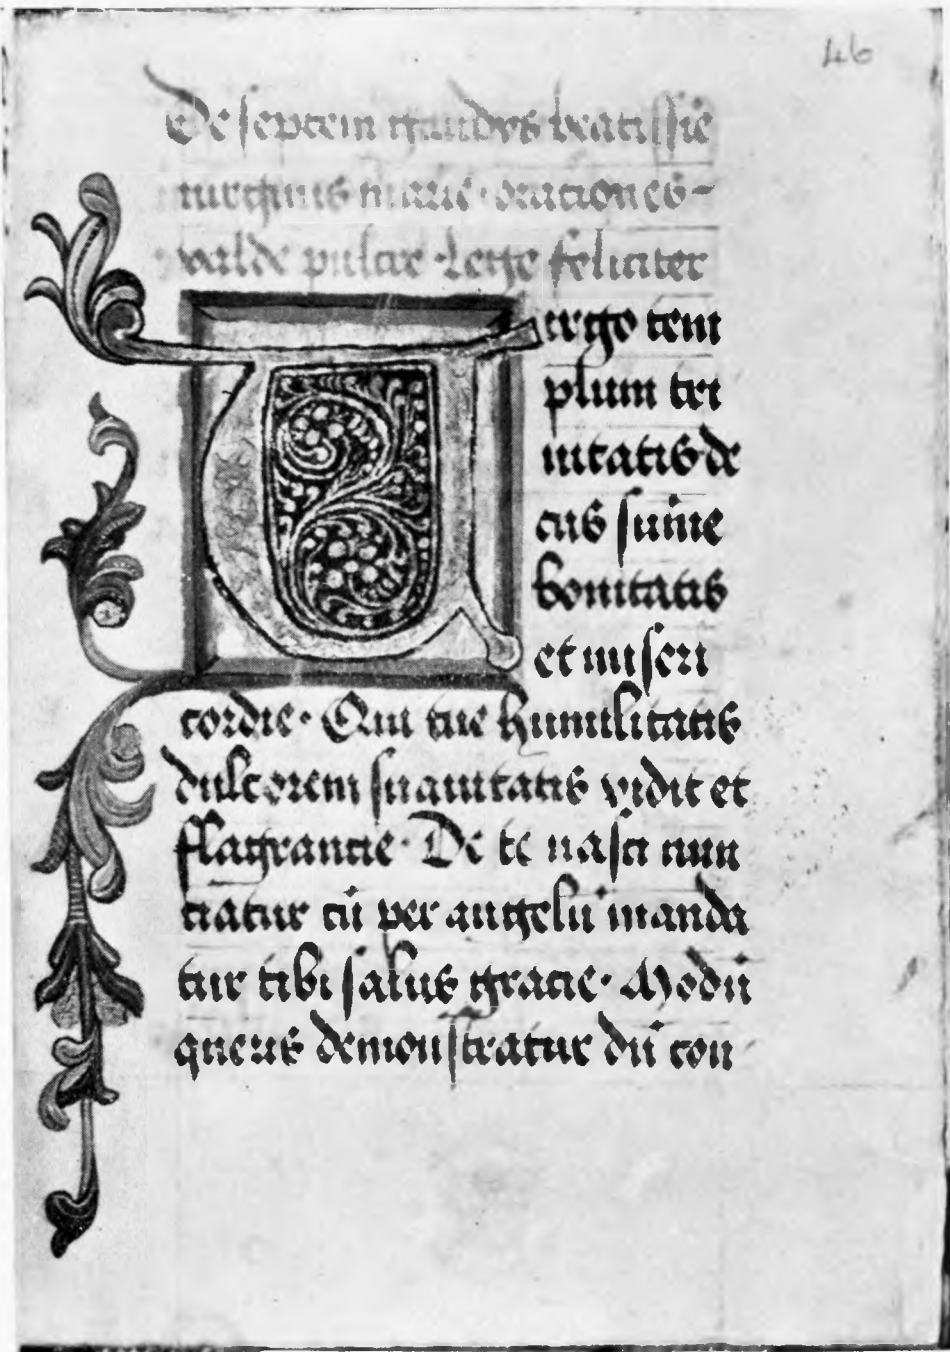 46
De septem gaudys beatissie
virginis marie · orationes
valde pulcre · Lege feliciter
Uirgo tem
plum tri
nitatis de
cus sum̄e
bonitatis
et miseri
cordie · Qui tue humilitatis
dulcorem suauitatis vidit et
flagrantie · De te nasci nun
ciatur cū per angelū manda
tur tibi salus gracie · Modū
queris demonstratur dū con